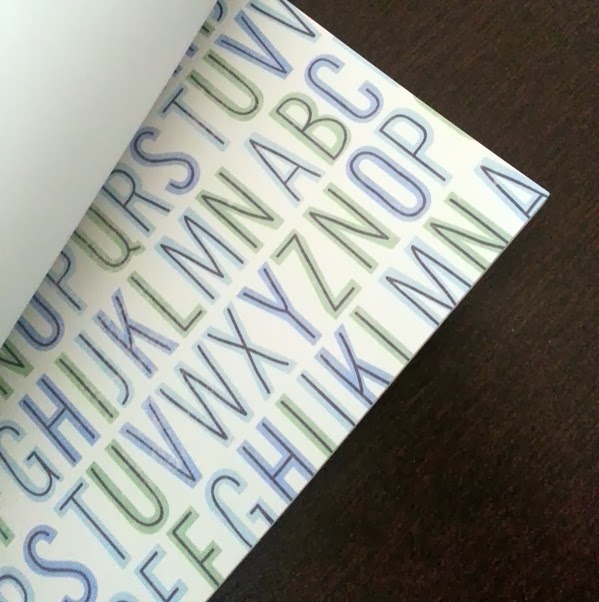 NOPQRSTUVW
GHIJKLMNABC
RSTUVWXYZNOP
EFGHIJKLMNA